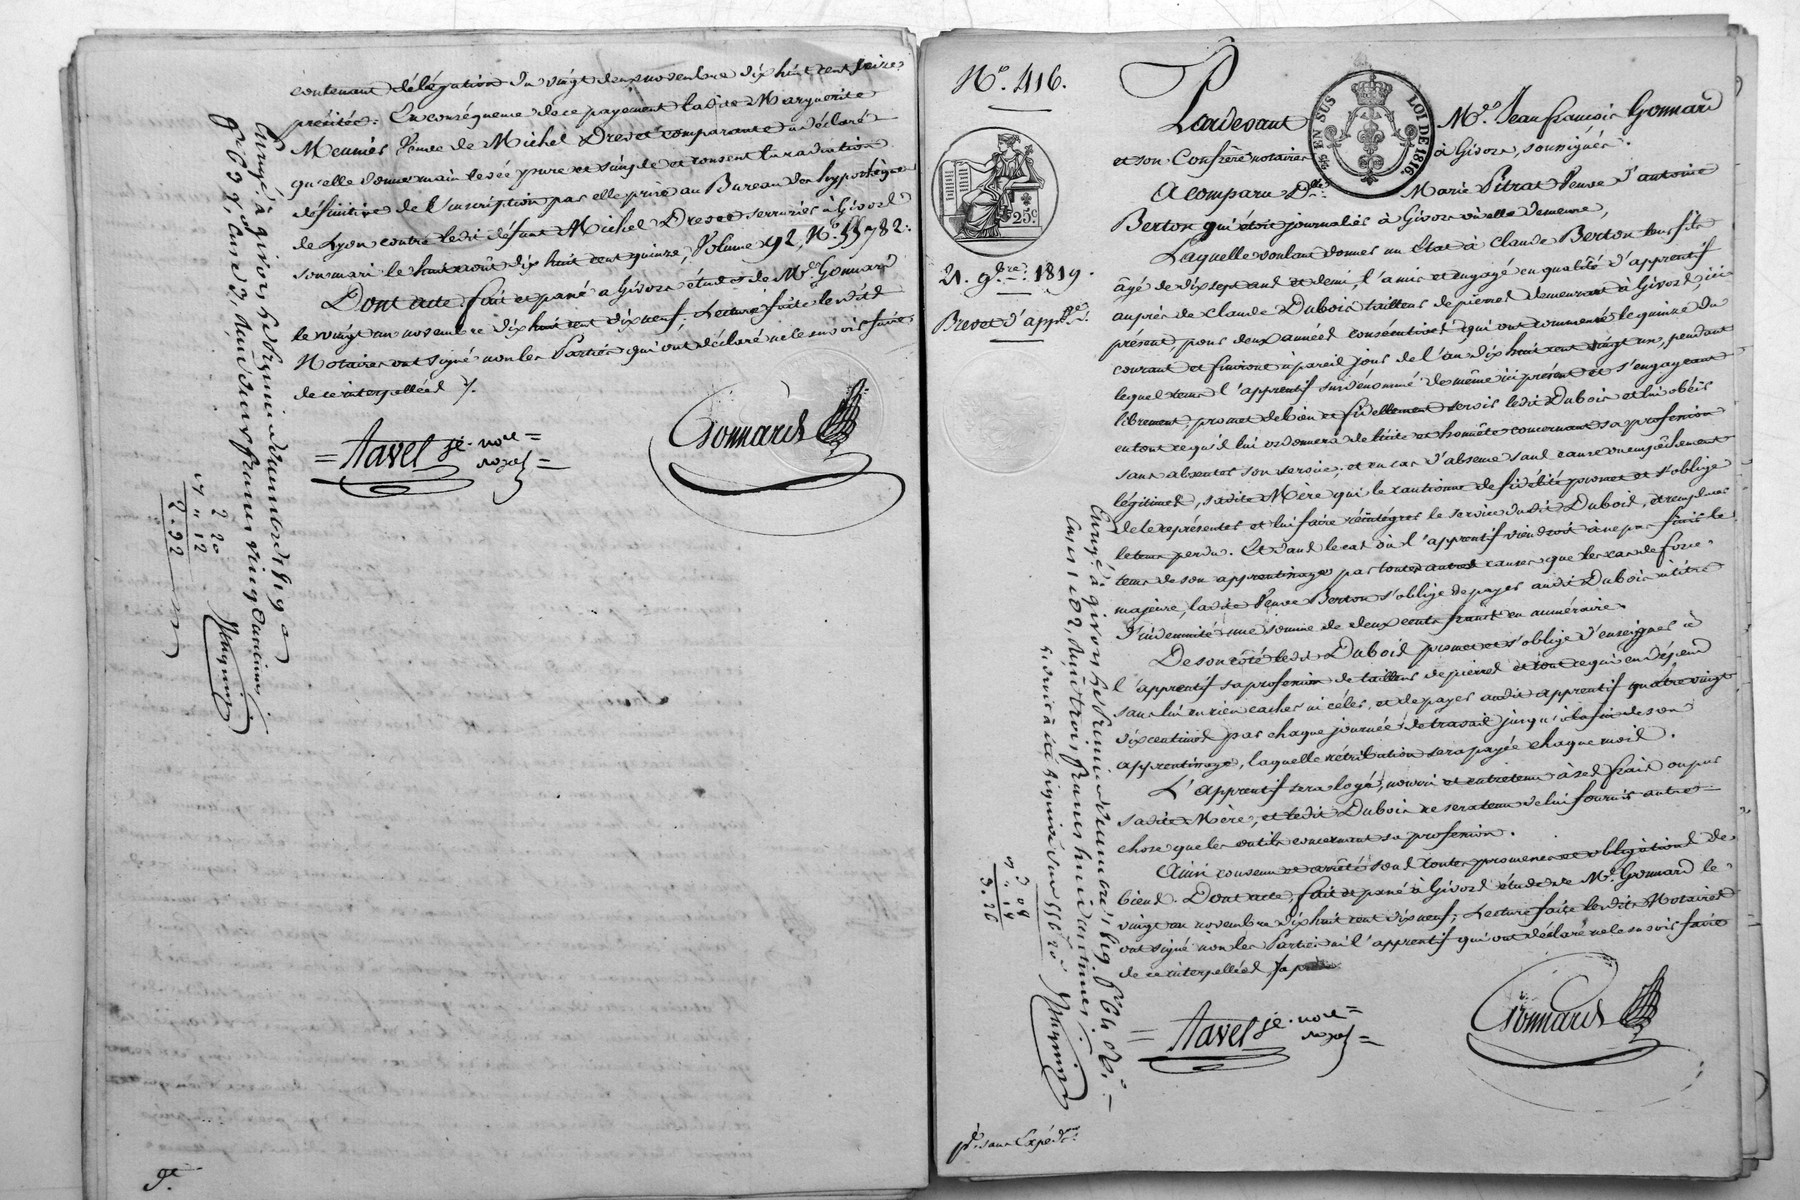 contenant délégation du vingt deux novembre dix huit cent seize
précitée. En conséquence de ce payement ladite Marguerite
Meunier Veuve de Michel Drevet comparante a déclaré
qu'elle donne main levée pure et simple et consent la radiation
définitive de l'inscription par elle prise au Bureau des hypothèques
de Lyon contre ledit défunt Michel Drevet serrurier à Givors
son mari le huit août dix huit cent quinze, Volume 192, N.º 55782.
Dont acte fait et passé a Givors étude de M.e Gonnard
le vingt un novembre dix huit cent dix neuf, Lecture faite lesdits
Notaires ont signé non les Parties qui ont déclaré ne le savoir faire
de ce interpellées ./.
= Tavel je. nore =
royal =
Gonnard
Enregé à givors le vingt deux novembre 1819
2 20
" 22
2. 92
9e.
N.º 416.
25c
21. 9bre. 1819.
Brevet d'appge.
EN SUS
LOI DE 1816
Pardevant M.e Jean françois Gonnard
et son Confrère notaires à Givors, soussignés.
A comparu D.lle Marie Pitrat Veuve d'antoine
Berton qui étoit journalier à Givors où elle demeure,
Laquelle voulant donner un Etat à Claude Berton leur fils
âgé de dix sept ans et demi, l'a mis et engagé en qualité d'apprentif
auprès de Claude Dubois tailleur de pierres demeurant à Givors, ici
présent, pour deux années consécutives qui ont commencé le quinze du
courant et finiront à pareil jour de l'an dix huit cent vingt un, pendant
lequel tems l'apprentif susdénommé de même ici présent et s'engageant
librement, promet de bien et fidellement servir ledit Dubois et lui obéir
en tout ce qu'il lui ordonnera de licite et honnête concernant sa profession
sans absenter son service; et en cas d'absence sans cause ou empêchement
légitimes, sadite Mère qui le cautionne de fidélité promet et s'oblige
de le représenter et lui faire réintégrer le service dudit Dubois, et remplacer
le tems perdu. Et dans le cas où l'apprentif viendroit à ne pas finir le
tems de son apprentissage par toutes autres causes que les cas de force
majeure, ladite Veuve Berton s'oblige de payer audit Dubois à titre
d'indemnité une somme de deux cents francs en numéraire.
De son côté ledit Dubois promet et s'oblige d'enseigner à
l'apprentif sa profession de tailleur de pierres et tout ce qui en dépend
sans lui en rien cacher ni céler, et de payer audit apprentif quatre vingt
dix centimes par chaque journée de travail jusqu'à la fin de son
apprentissage, laquelle rétribution sera payée chaque mois.
L'apprentif sera logé, nourri et entretenu à ses frais ou par
sadite Mère, et ledit Dubois ne sera tenu de lui fournir autre
chose que les outils concernant sa profession.
Ainsi convenu et arrêté sous toutes promesses et obligations de
biens. Dont acte, fait et passé à Givors étude de M.e Gonnard le
vingt un novembre dix huit cent dix neuf; Lecture faite lesdits Notaires
ont signé non les Parties ni l'apprentif qui ont déclaré ne le savoir faire
de ce interpellées,
= Tavel je. nore =
royal =
Gonnard
3. 26
pr. sans Expéd.on